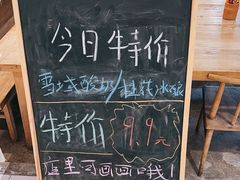 今日特价
雪域酸奶/桂花冰粉
特价 9.9元
店里可画画哦！